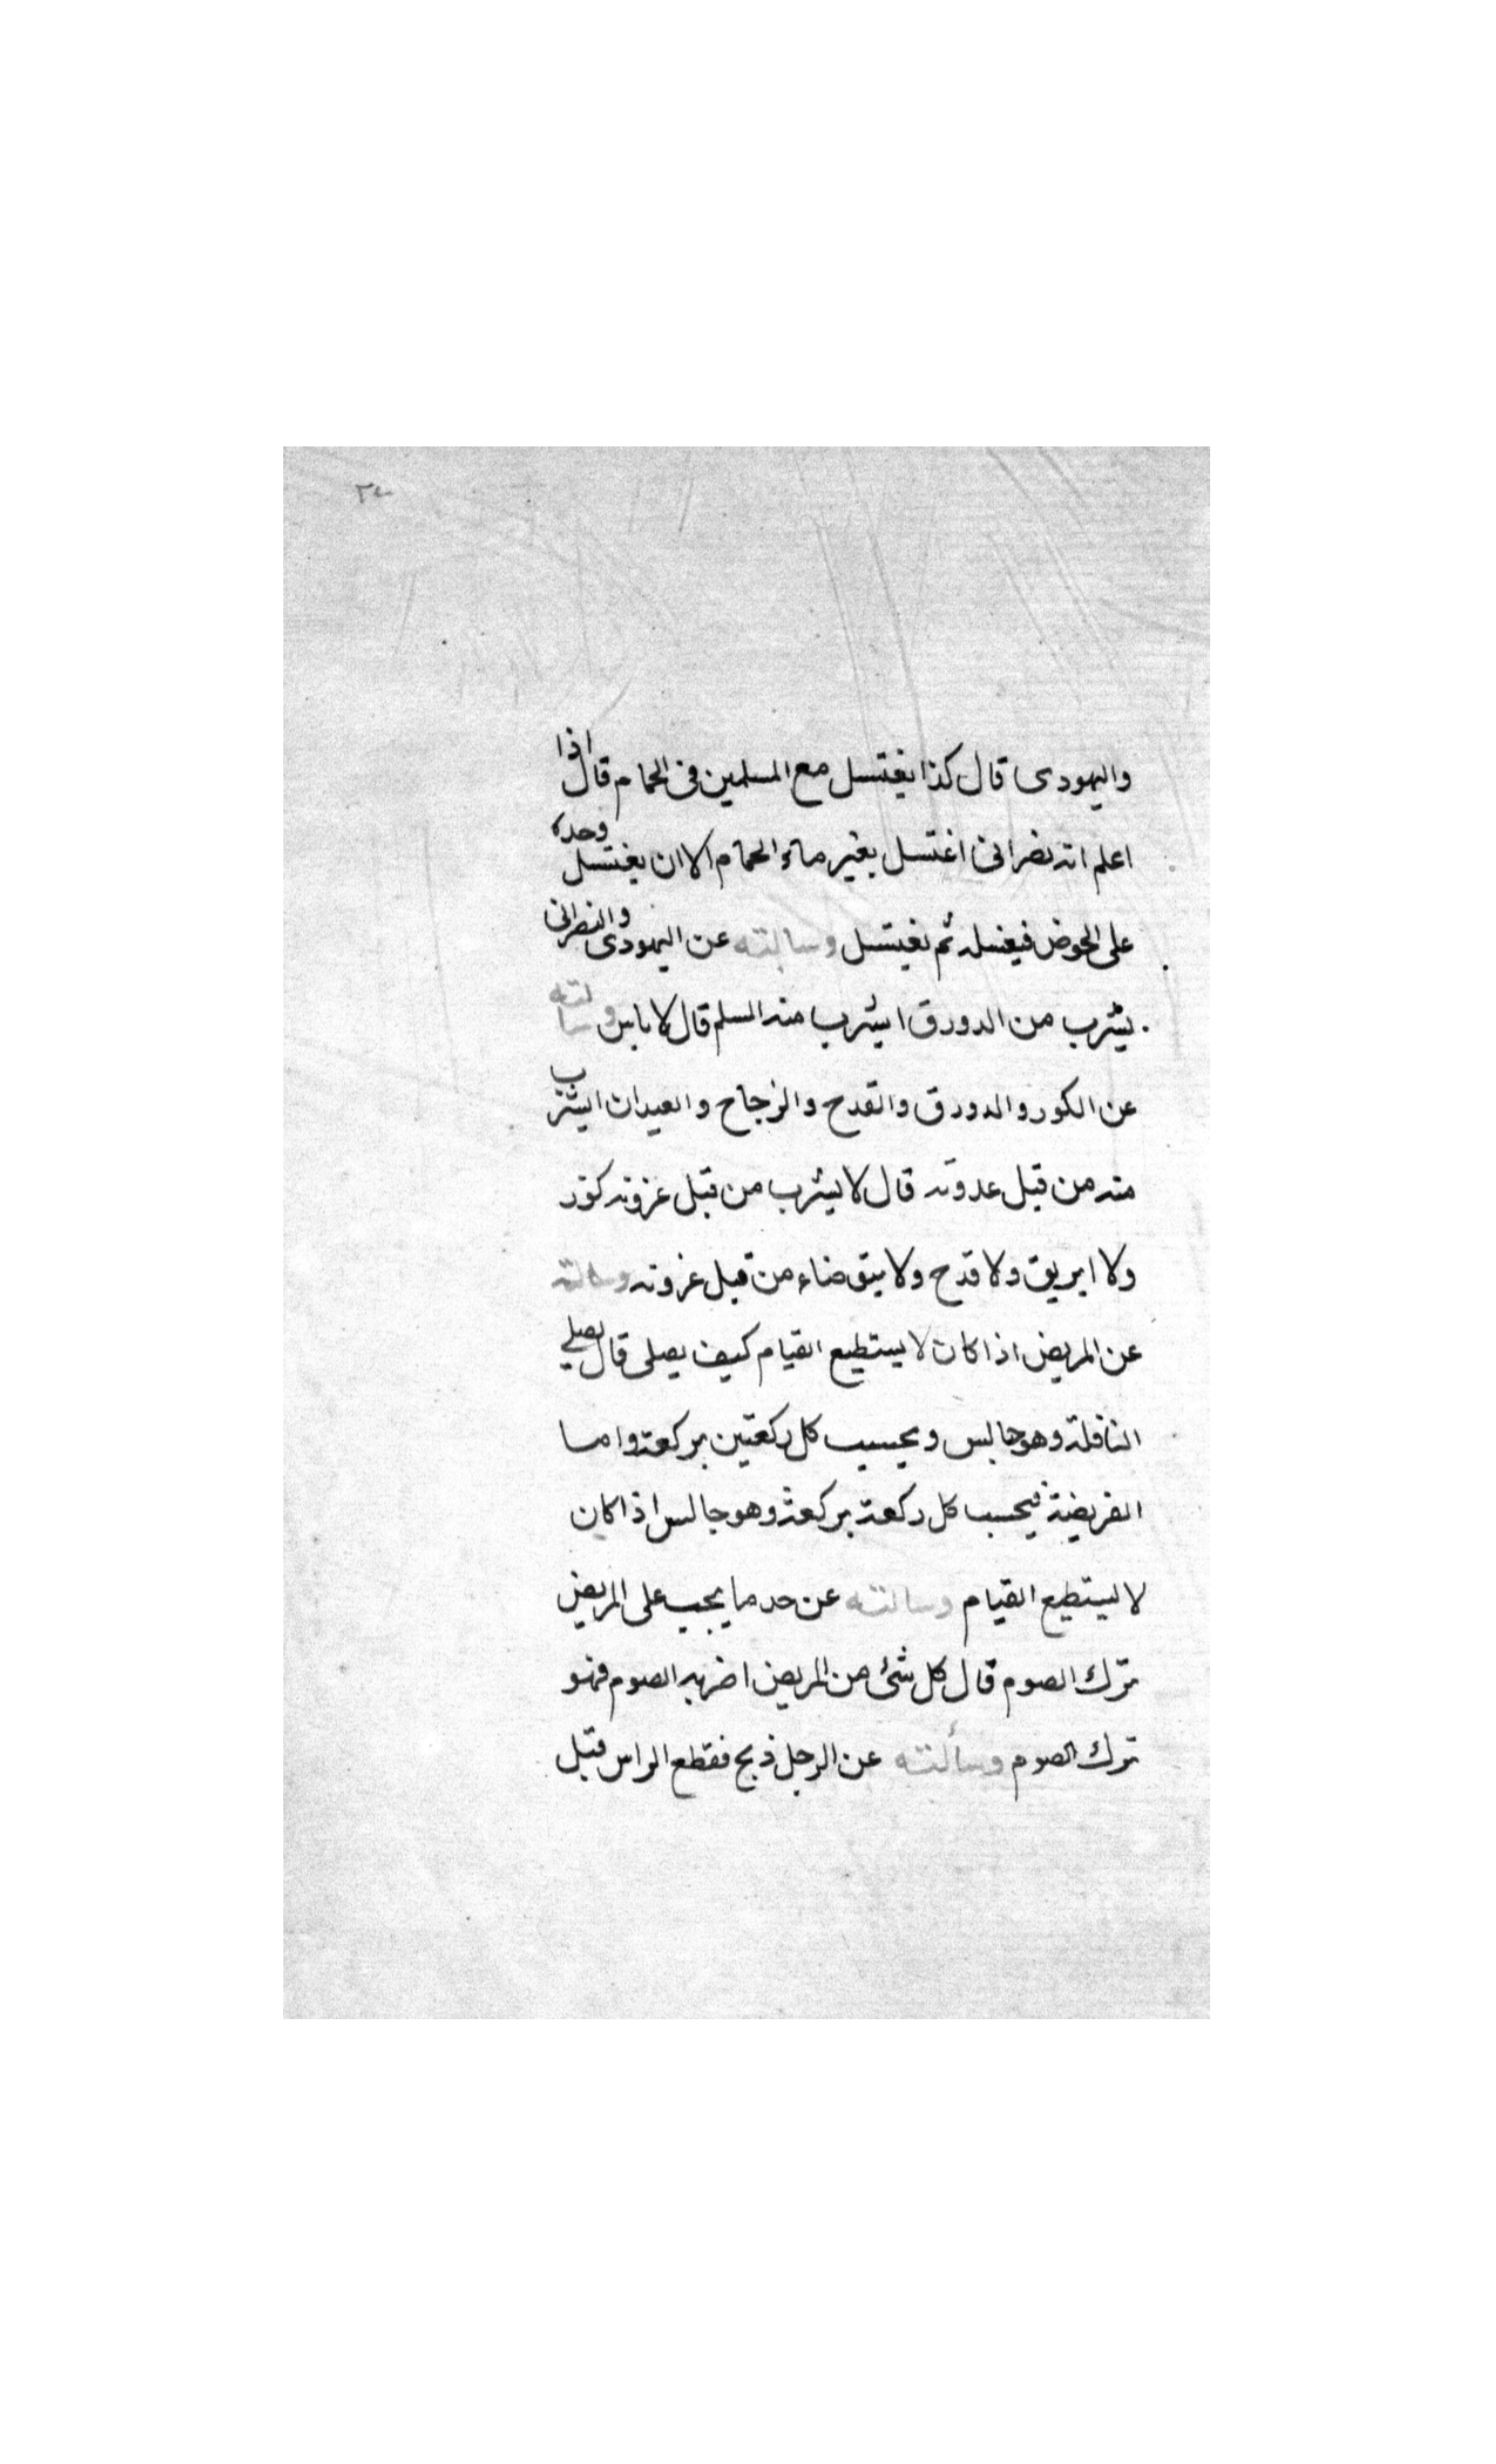 ٣٤
واليهودى قال كذا يغتسل مع المسلمين فى الحمام قال اذا
اعلم انه نصرانى اغتسل بغير ماء الحمام الا ان يغتسل وحده
على الحوض فيغسله ثم يغتسل وسالته عن اليهودى والنصرانى
يشرب من الدورق ايشرب منه المسلم قال لا باس وسالته
عن الكور والدورق والقدح والزجاج والعيدان ايشرب
منه من قبل عدوته قال لا يشرب من قبل عزوته كوز
ولا ابريق ولا قدح ولا يتوضاء من قبل عزوته وسالته
عن المريض اذا كان لا يستطيع القيام كيف يصلى قال يصلي
النافلة وهو جالس ويحسب كل ركعتين بركعة واما
الفريضة فيحسب كل ركعة بركعة وهو جالس اذا كان
لا يستطيع القيام وسالته عن حد ما يجب على المريض
ترك الصوم قال كل شئ من المريض اضر به الصوم فهو
ترك الصوم وسألته عن الرجل ذبح فقطع الراس قبل